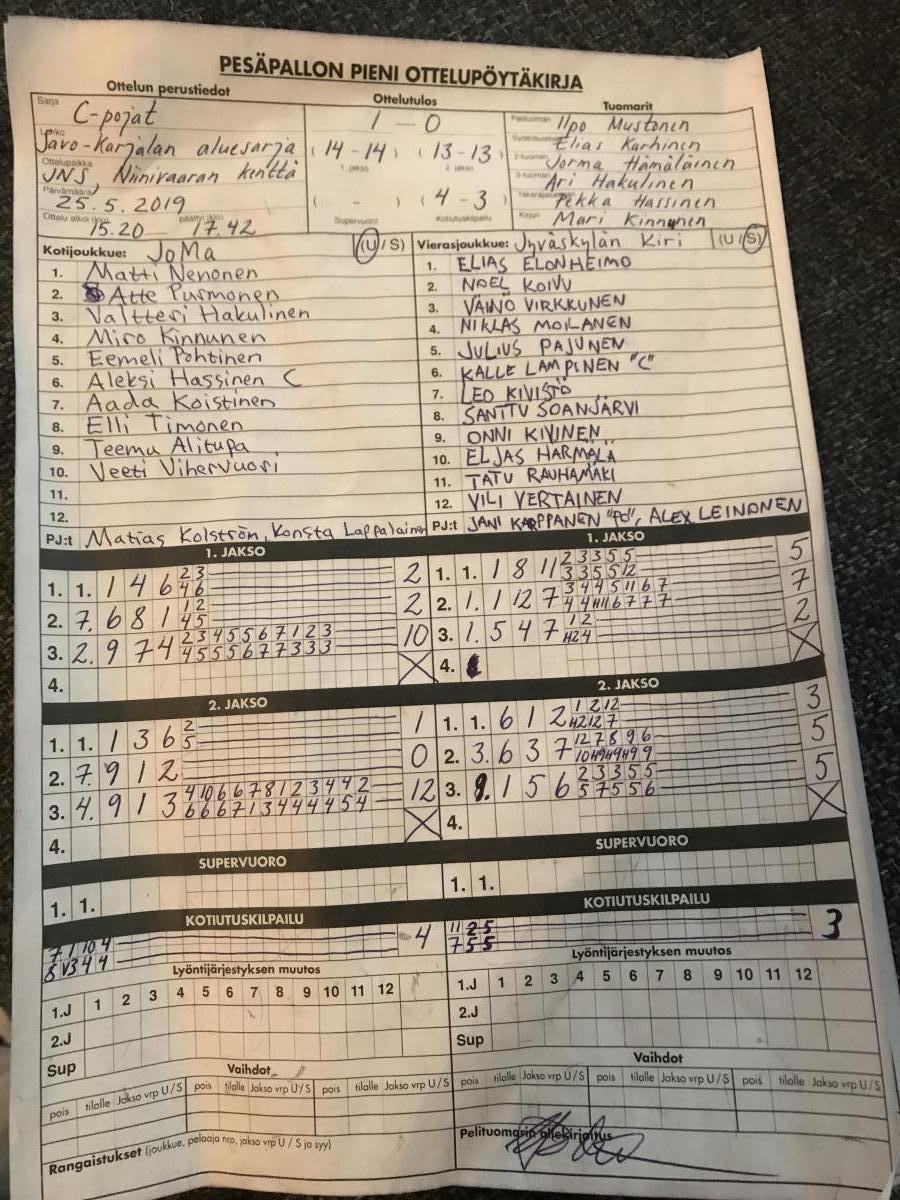 PESÄPALLON PIENI OTTELUPÖYTÄKIRJA
Ottelun perustiedot Ottelutulos Tuomarit
Sarja C-pojat 1 - 0 Pelituomari Ilpo Mustonen
Lohko Savo-Karjalan aluesarja (14-14) (13-13) Elias Karhinen
1. jakso 2. jakso
Ottelupaikka JNS Niinivaaran kenttä 2-tuomari Jorma Hämäläinen
Päivämäärä 25.5.2019 ( - ) (4-3) 3-tuomari Ari Hakulinen
Takarajatuomari Pekka Hassinen
Ottelu alkoi (klo) 15.20 päättyi (klo) 17.42 Supervuoro Kotiutuskilpailu Kirjuri Mari Kinnunen
Kotijoukkue: JoMa (U/S) Vierasjoukkue: Jyväskylän Kiri (U/S)
1. Matti Nenonen 1. ELIAS ELONHEIMO
2. Atte Purmonen 2. NOEL KOIVU
3. Valtteri Hakulinen 3. VÄINÖ VIRKKUNEN
4. Miro Kinnunen 4. NIKLAS MOILANEN
5. Eemeli Pohtinen 5. JULIUS PAJUNEN
6. Aleksi Hassinen C 6. KALLE LAMPINEN "C"
7. Aada Koistinen 7. LEO KIVISTÖ
8. Elli Timonen 8. SANTTU SOANJÄRVI
9. Teemu Alitupa 9. ONNI KIVINEN
10. Veeti Vihervuori 10. ELJAS HARMALA
11. 11. TATU RAUHAMÄKI
12. 12. VILI VERTAINEN
PJ:t Matias Kolström, Konsta Lappalainen PJ:t JANI KARPPANEN "PO", ALEX LEINONEN
1. JAKSO 1. JAKSO
1. 1. 1 4 6 2 3 2 1. 1. 1 8 11 2 3 3 5 5 5
4 6 3 3 5 5 12
2. 7. 6 8 1 1 2 2 2. 1. 1 12 7 3 4 4 5 11 6 7 7
4 5 4 4 11 11 6 7 7 7
3. 2. 9 7 4 2 3 4 5 5 6 7 1 2 3 10 3. 1. 5 4 7 1 2 2
4 5 5 5 6 7 7 3 3 3 12 4
4. X 4. X
2. JAKSO 2. JAKSO
1. 1. 1 3 6 2 1 1. 1. 6 1 2 1 2 12 3
5 12 12 7
2. 7. 9 1 2 0 2. 3. 6 3 7 12 7 8 9 6 5
3. 4. 9 1 3 4 10 6 6 7 8 1 2 3 4 4 2 12 3. 9. 1 5 6 2 3 3 5 5 5
6 6 6 7 1 3 4 4 4 4 5 4 5 7 5 5 6
4. X 4. X
SUPERVUORO SUPERVUORO
1. 1. 1. 1.
KOTIUTUSKILPAILU KOTIUTUSKILPAILU
7 1 10 4 4 11 2 5 3
8 V3 4 4 7 5 5
Lyöntijärjestyksen muutos Lyöntijärjestyksen muutos
1.J 1 2 3 4 5 6 7 8 9 10 11 12 1.J 1 2 3 4 5 6 7 8 9 10 11 12
2.J 2.J
Sup Sup
Vaihdot Vaihdot
pois tilalle Jakso vrp U/S pois tilalle Jakso vrp U/S pois tilalle Jakso vrp U/S pois tilalle Jakso vrp U/S pois tilalle Jakso vrp U/S pois tilalle Jakso vrp U/S
Rangaistukset (joukkue, pelaaja nro, jakso vrp U / S ja syy) Pelituomarin allekirjoitus